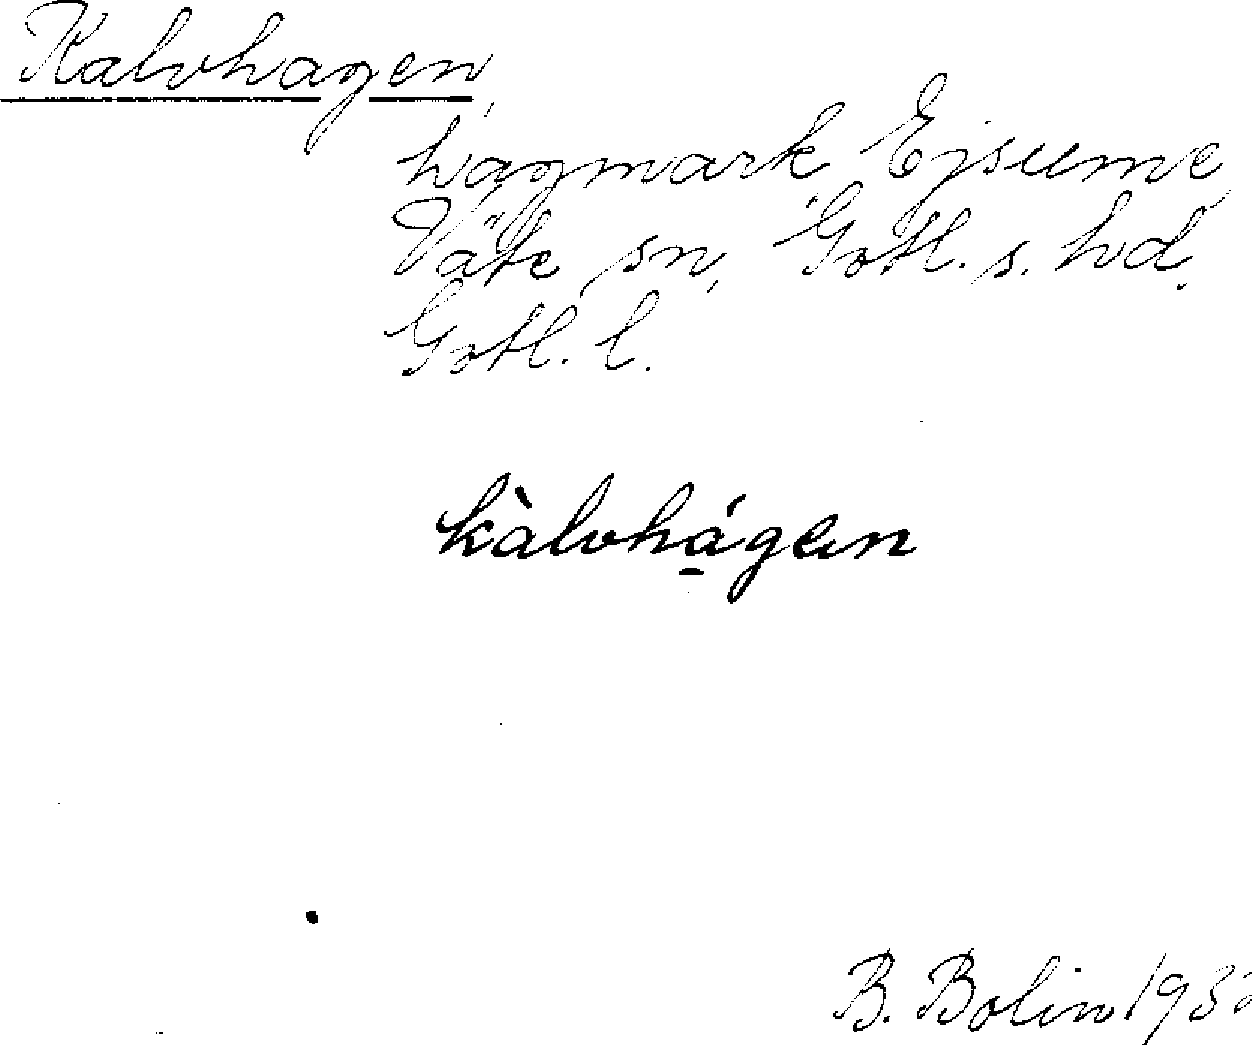 Kalvhagen,
hagmark, Ejsume,
Väte sn, Gotl. s. hd.
Gotl. l.
kàlvhá̱gen
B. Bolin